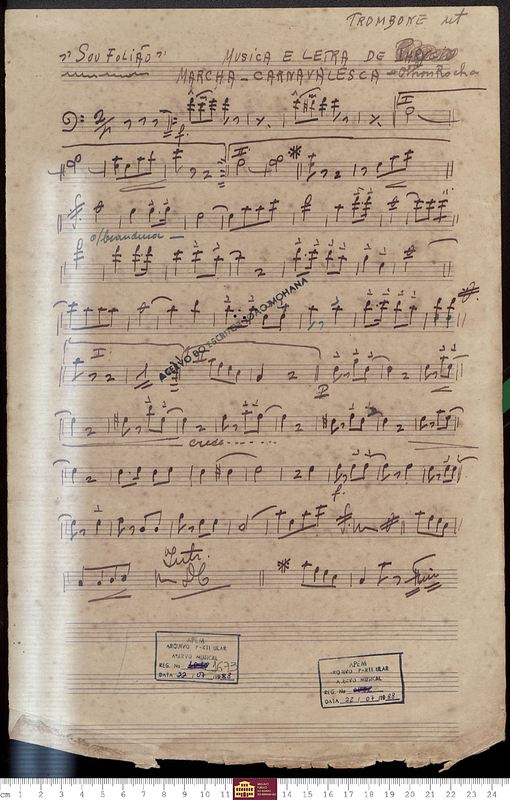 TROMBONE ut
"SOU FOLIÃO" MUSICA E LETRA DE
MARCHA-CARNAVALESCA
f.
I
II
p/brandura
ACERVO DO ESCRITOR JOÃO MOHANA
I
II
P
cresc.
f.
Intr.
DC
Fim
APEM
ARQUIVO PARTICULAR
ACERVO MUSICAL
REG. No 1673
DATA 22 / 07 /1988
APEM
ARQUIVO PARTICULAR
ACERVO MUSICAL
REG. No
DATA 22 / 07 /1988
cm 1 2 3 4 5 6 7 8 9 10 11 12 13 14 15 16 17 18 19 20 21 22 23 24